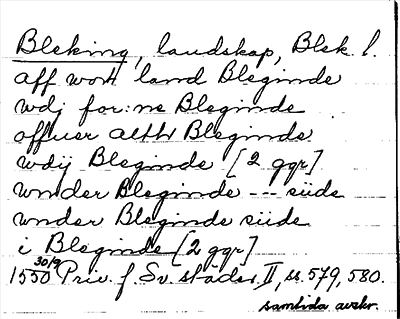 Bleking, landskap, Blek. l.
aff wort land Bleginde
wdj for:ne Bleginde
offuer altht Bleginde
wdij Bleginde [2 ggr]
wnder Bleginde --- siide
wnder Bleginde siide
i Bleginde [2 ggr]
1550 30/9 Priv. f. Sv. städer II, ss. 579, 580.
samtida avskr.